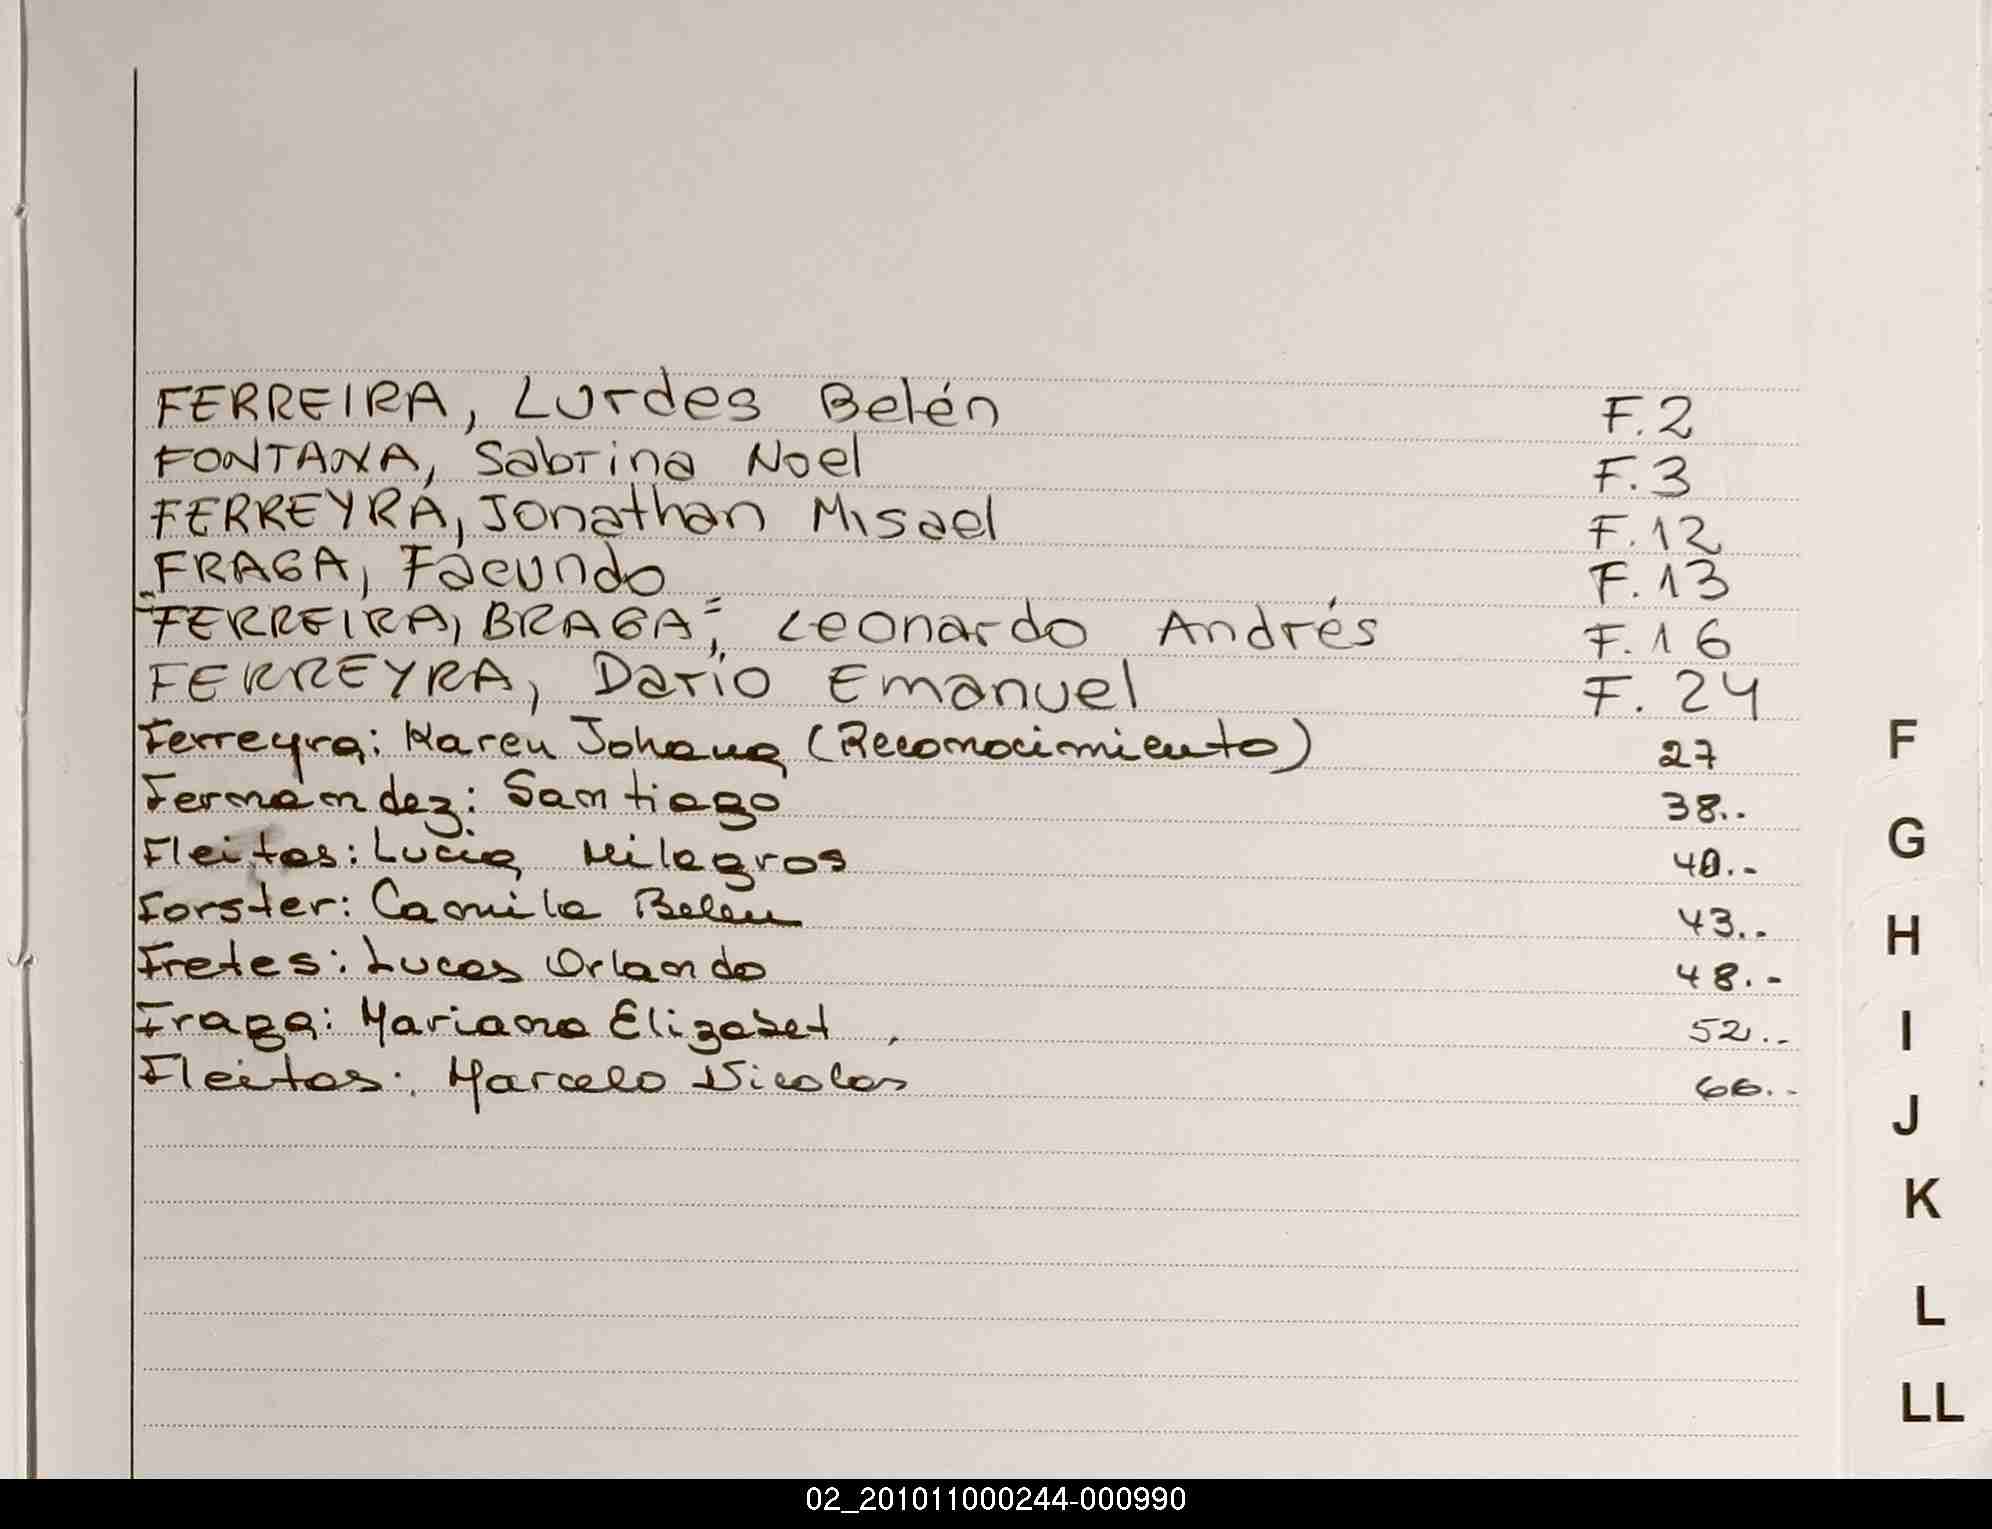 FERREIRA, Lurdes Belén F.2
FONTANA, Sabrina Noel F.3
FERREYRA, Jonathan Misael F.12
FRAGA, Facundo F.13
"FERREIRA, BRAGA", Leonardo Andrés F.16
FERREYRA, Darío Emanuel F. 24
Ferreyra: Karen Johana (Reconocimiento) 27
Fernandez: Santiago 38..
Fleitas: Lucia Milagros 40.-
Forster: Camila Belen 43..
Fretes: Lucas Orlando 48.-
Fraga: Mariana Elizabet 52..
Fleitas: Marcelo Nicolas 66..
F
G
H
I
J
K
L
LL
02_201011000244-000990